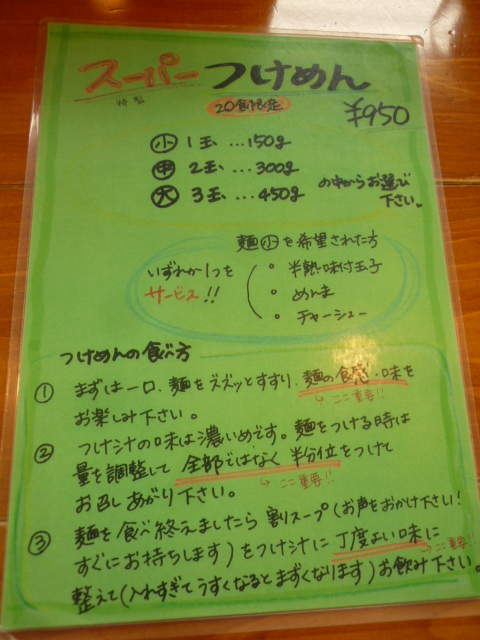 スーパーつけめん
特製
20食限定
¥950
小 1玉…150g
中 2玉…300g
大 3玉…450g
の中からお選び
下さい。
麺小を希望された方
いずれか1つを
サービス!!
・半熟味付玉子
・めんま
・チャーシュー
つけめんの食べ方
① まずは一口、麺をズズッとすすり、麺の食感・味を
↳ここ重要!!
お楽しみ下さい。
② つけ汁の味は濃いめです。麺をつける時は
量を調整して 全部ではなく半分位をつけて
↳ここ重要!!
お召しあがり下さい。
③ 麺を食べ終えましたら 割りスープ(お声をおかけ下さい!
すぐにお持ちします)をつけ汁に丁度よい味に
↳ここ重要!!
整えて(入れすぎてうすくなるとまずくなります)お飲み下さい。